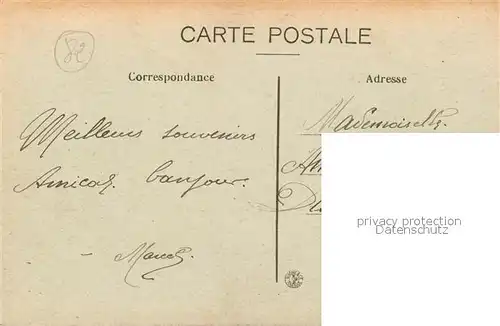 82
CARTE POSTALE
Correspondance
Adresse
Meilleurs souvenirs
Amical bonjour.
Mademoiselle
privacy protection
Datenschutz